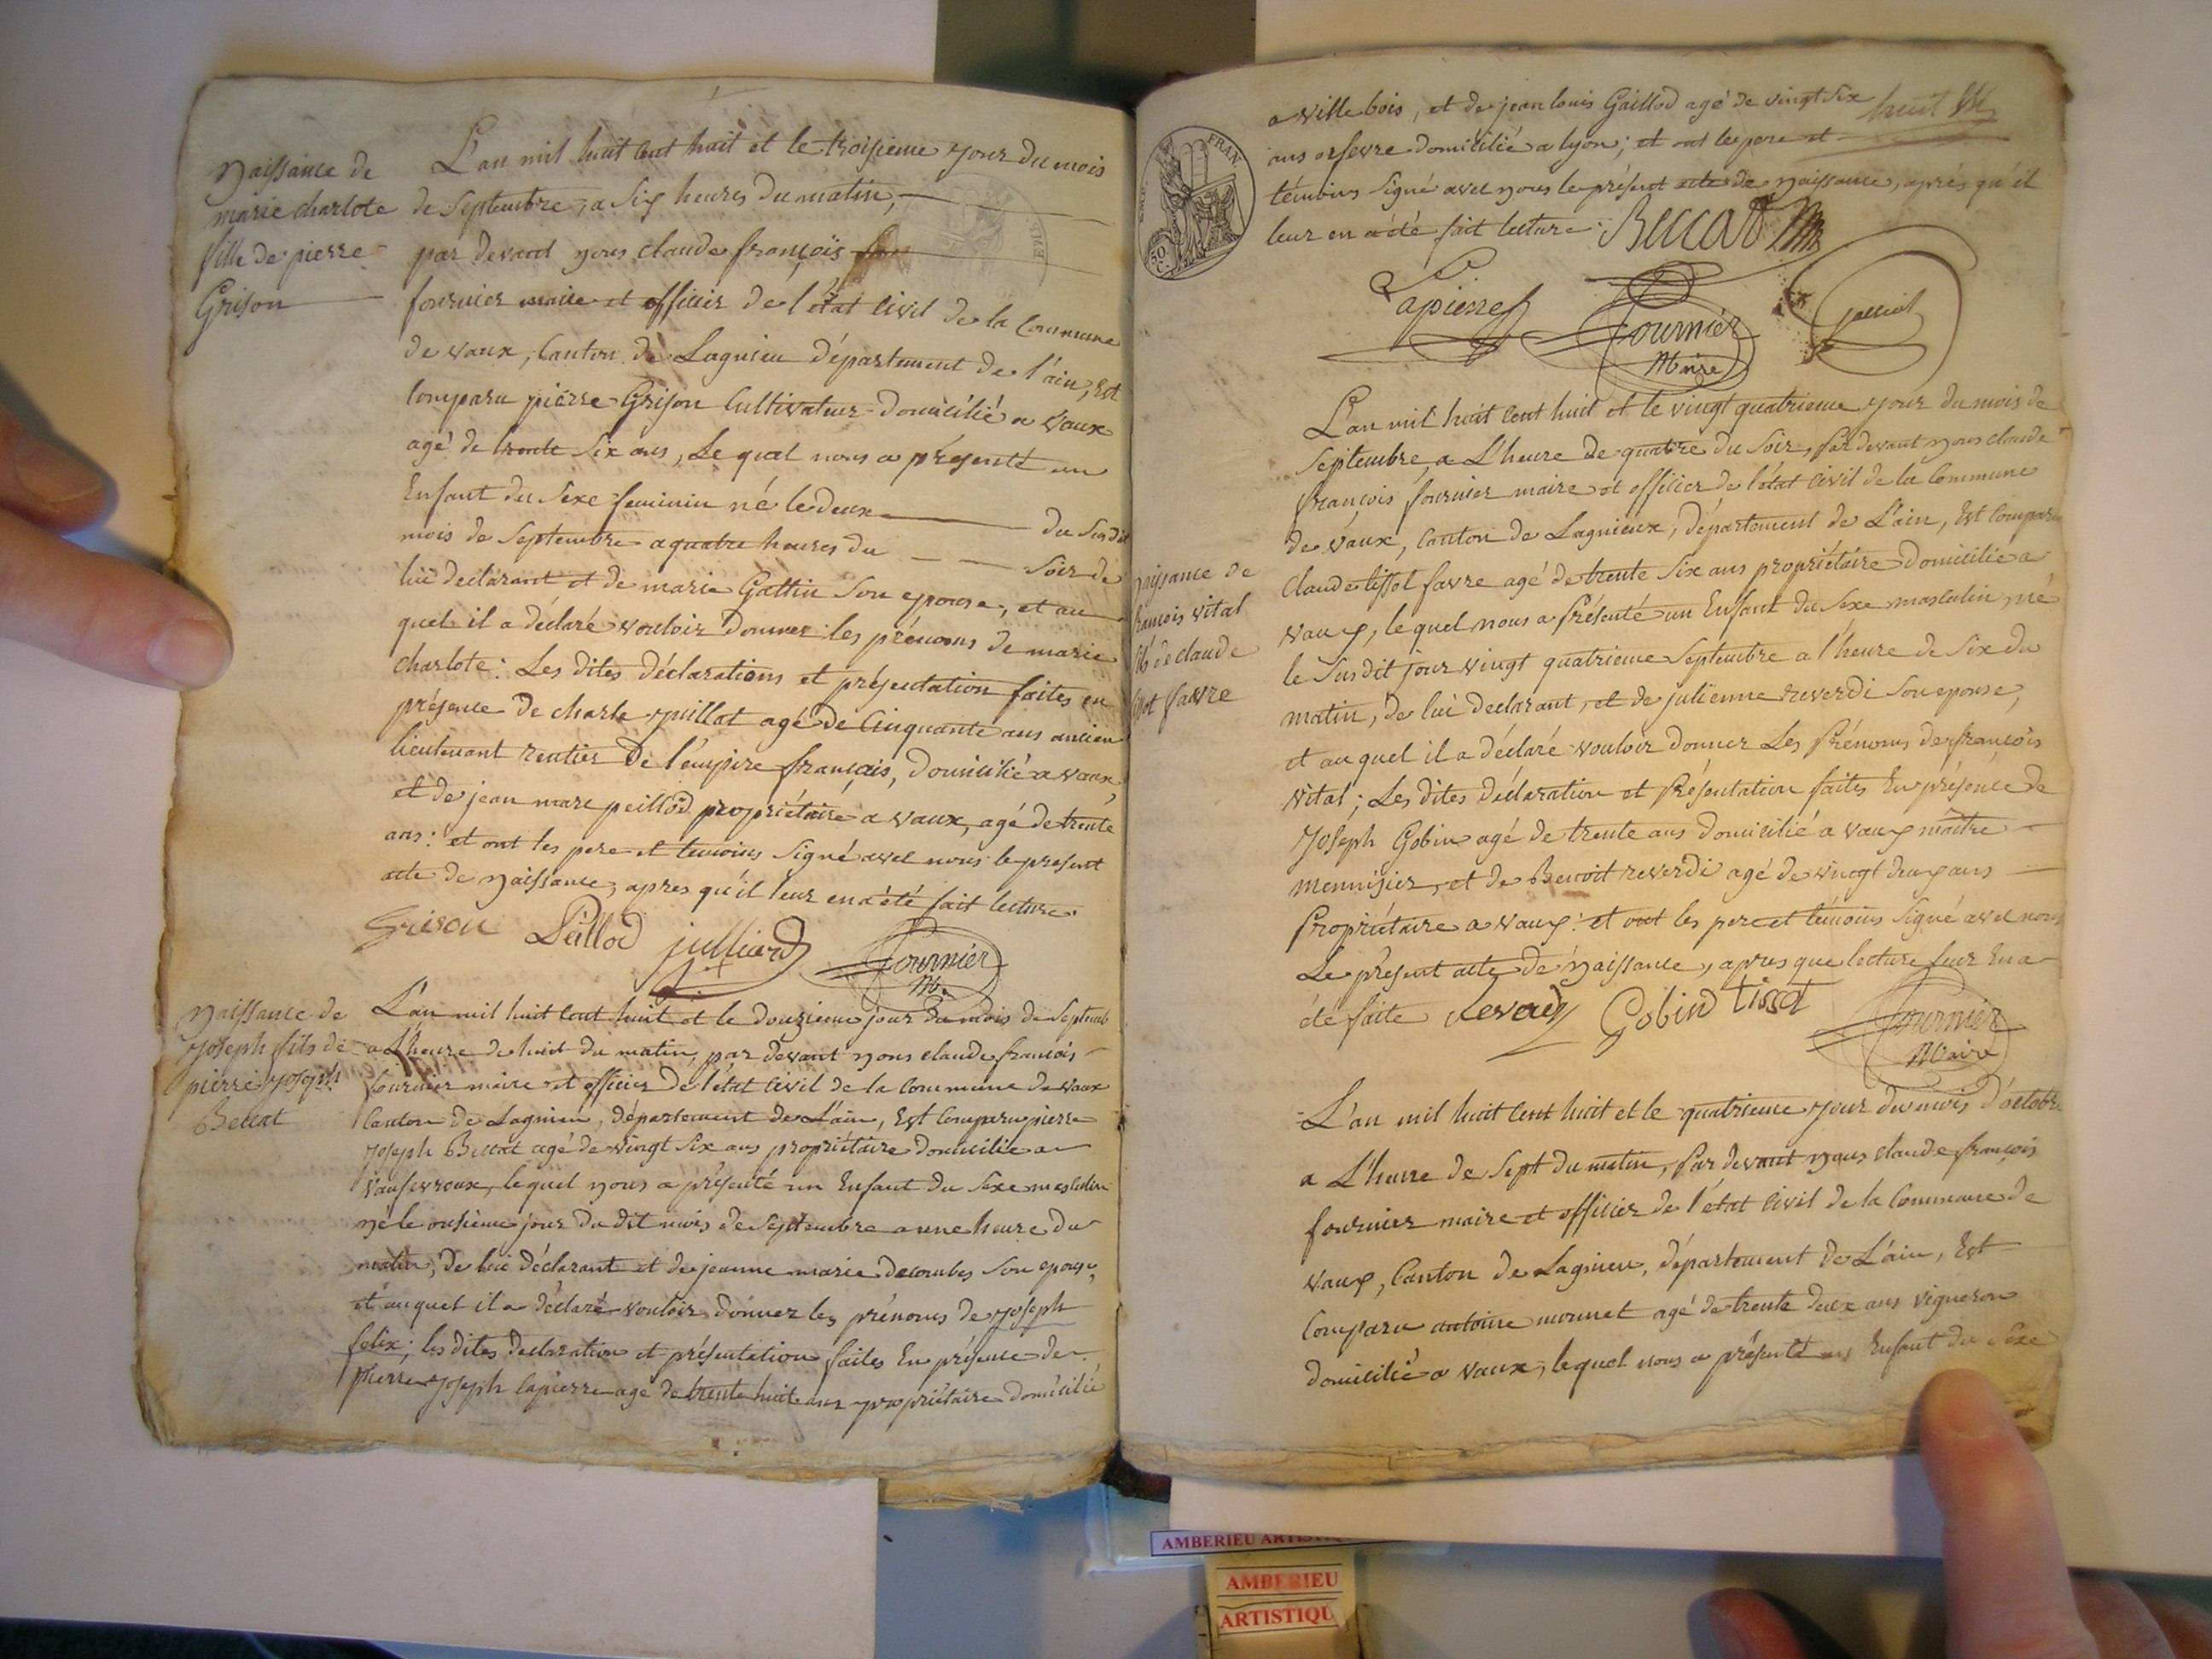 Naissance de
marie charlote
fille de pierre
Grison
L'an mil huit cent huit et le troisieme jour du mois
de Septembre, a Six heures du matin,
par devant nous claude françois
fournier maire et officier de l'état civil de la Commune
de vaux, Canton de Lagnieu département de l'ain, Est
Comparu pierre Grison Cultivateur domicilié a vaux
agé de trente Six ans, Le quel nous a présenté un
Enfant du Sexe feminin né le deux du Susdit
mois de Septembre a quatre heures du Soir de
lui declarant et de marie Gattin Son epouse, et au
quel il a déclaré vouloir donner les prénoms de marie
charlote: Les dites déclarations et présentation faites en
présence de charle juillat agé de Cinquante ans ancien
lieutenant rentier de l'empire français, domicilié a vaux,
et de jean marc peillod propriétaire a vaux, agé de trente
ans: et ont les pere et temoins Signé avec nous le present
acte de Naissance, apres qu'il leur en a été fait lecture.
Grison Peillod julliard Fournier
M.
Naissance de
Joseph fils de
pierre Joseph
Beccat
L'an mil huit cent huit et le douzieme jour du mois de Septemb
a L'heure de huit du matin, par devant nous claude francois
fournier maire et officier de l'état civil de la Commune de vaux
Canton de Lagnieu, département de L'ain, Est Comparu pierre
Joseph Beccat agé de vingt Six ans propriétaire domicilié a
vaufevroux, lequel nous a présenté un Enfant du Sexe masculin
né le onsieme jour du dit mois de Septembre a une heure du
matin, de lui déclarant et de jeanne marie decombes Son epouse,
et auquel il a déclaré vouloir donner les prénoms de Joseph
felix; les dites declaration et présentation faites En présence de
pierre Joseph lapierre agé de trente huit ans propriétaire domicilié
huit
a ville bois, et de jean louis Gaillod agé de vingt Six
ans orfevre domicilié a lyon; et ont les pere et
témoins Signé avec nous le présent acte de naissance, aprés qu'il
leur en a été fait lecture. Beccat
FRAN.
50
C.
Lapierre Fournier
Maire
Naissance de
francois vital
fils de claude
tissot favre
L'an mil huit cent huit et le vingt quatrieme jour du mois de
Septembre, a L'heure de quatre du Soir, par devant nous claude
françois fournier maire et officier de l'état civil de la Commune
de vaux, Canton de Lagnieux, département de L'ain, Est Comparu
Claude tissot favre agé de trente Six ans propriétaire domicilié a
vaux, lequel nous a présenté un Enfant du Sexe masculin, né
le Susdit jour vingt quatrieme Septembre a l'heure de Six du
matin, de lui declarant, et de julienne reverdi Son epouse,
et au quel il a déclaré vouloir donner Les prénoms de françois
vital; Les dites déclaration et présentation faites En présence de
Joseph Gobin agé de trente ans domicilié a vaux maitre
mennisier, et de Benoit reverdi agé de vingt deux ans
propriétaire a vaux: et ont les pere et témoins Signé avec nous
Le présent acte de Naissance, apres que lecture leur En a
été faite Reverdy Gobin tissot Fournier
Maire
L'an mil huit cent huit et le quatrieme jour du mois d'octobre
a L'heure de Sept du matin, par devant nous claude françois
fournier maire et officier de l'état civil de la Commune de
vaux, Canton de Lagnieu, département de L'ain, Est
Comparu antoine monnet agé de trente deux ans vigneron
domicilié a vaux, lequel nous a présenté un Enfant du Sexe
AMBERIEU
AMBERIEU
ARTISTIQU